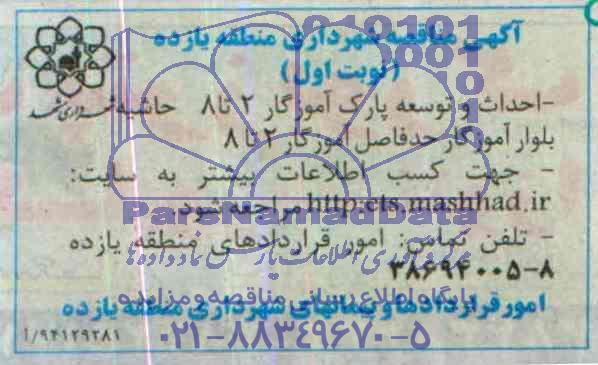 آگهی مناقصه شهرداری منطقه یازده
(نوبت اول)
شهرداری مشهد
-احداث و توسعه پارک آموزگار ۲ تا ۸ حاشیه
بلوار آموزگار حدفاصل آموزگار ۲ تا ۸
- جهت کسب اطلاعات بیشتر به سایت:
http:ets.mashhad.ir مراجعه شود.
ParsNamadData
- تلفن تماس: امور قراردادهای منطقه یازده
۳۸۶۹۴۰۰۵-۸
پایگاه اطلاع رسانی مناقصه و مزایده
امور قراردادها و پیمانهای شهرداری منطقه یازده
۰۲۱-۸۸۳۴۹۶۷۰-۵
۹۴۱۲۹۳۸۱/آ